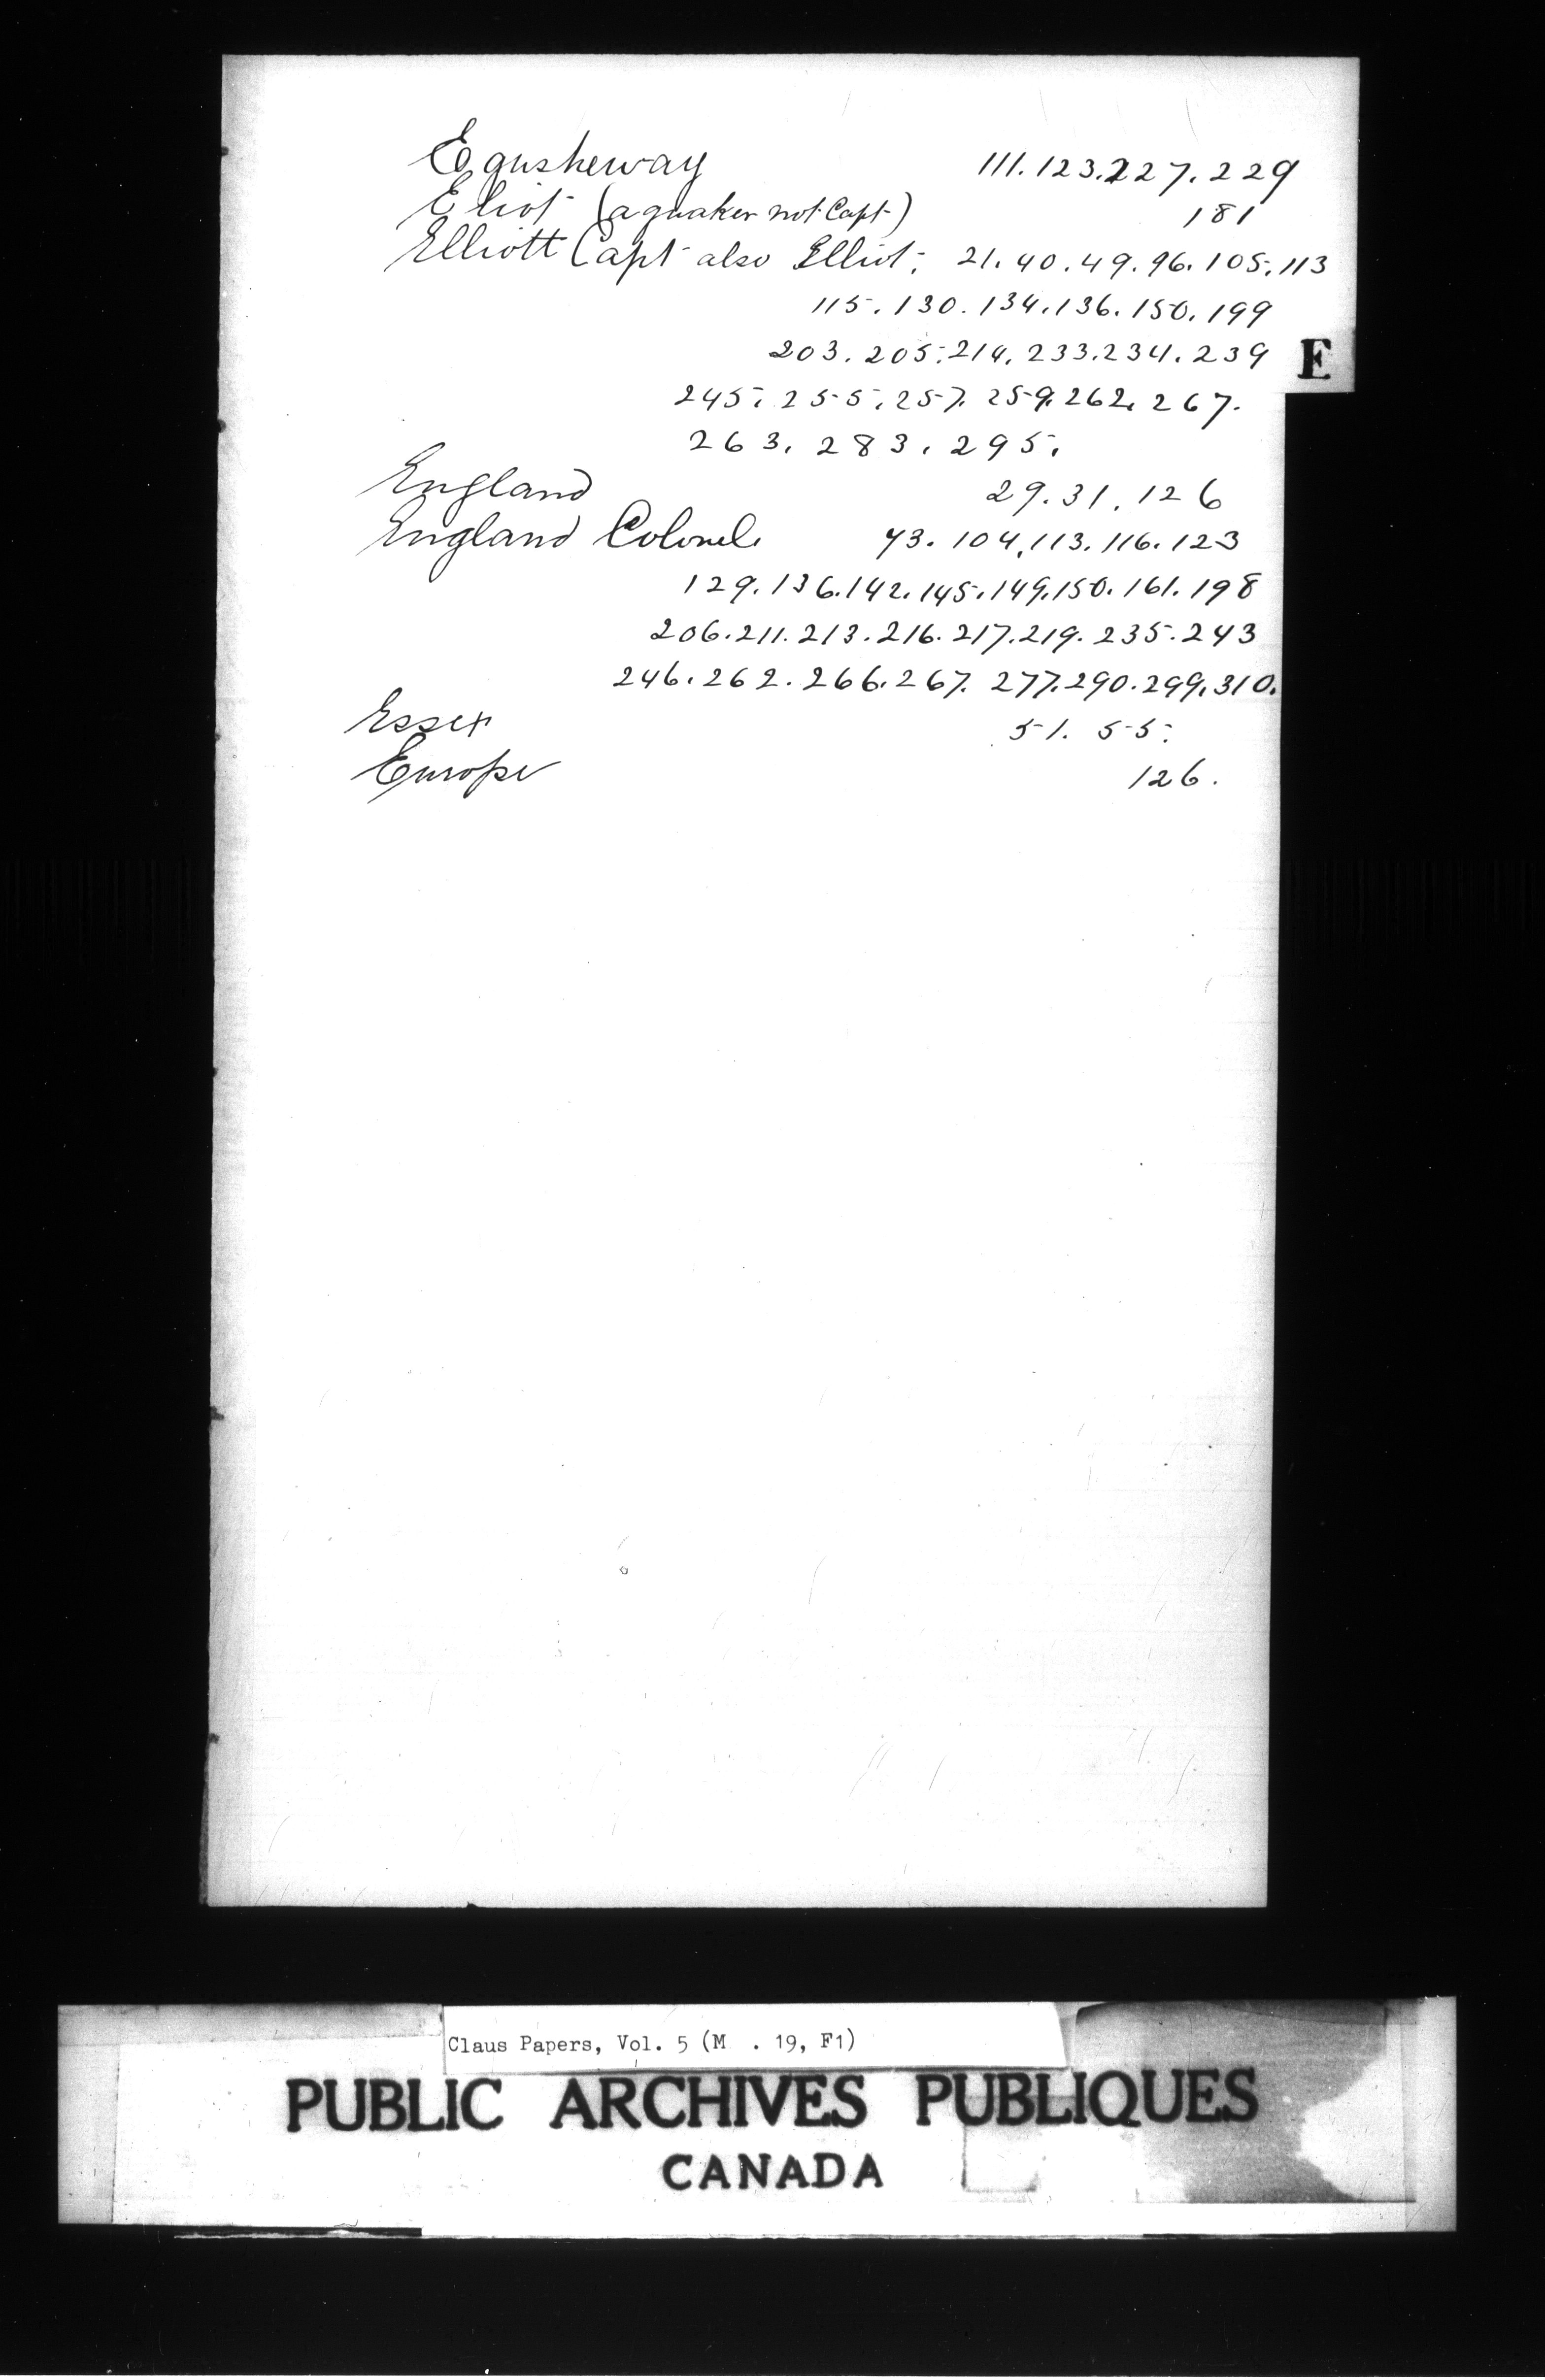 Egusheway 111. 123. 227. 229
Eliot (a quaker not Capt) 181
Elliott Capt also Elliot; 21. 40. 49. 96. 105. 113
115. 130. 134. 136. 150. 199
203. 205. 214. 233. 234. 239
E
245. 255. 257. 259. 262. 267.
263. 283. 295.
England 29. 31. 126
England Colonel. 43. 104, 113. 116. 123
129. 136. 142. 145. 149. 150. 161. 198
206. 211. 213. 216. 217. 219. 235. 243
246. 262. 266. 267. 277. 290. 299. 310.
Essex 51. 55.
Europe 126.
Claus Papers, Vol. 5 (M . 19, F1)
PUBLIC ARCHIVES PUBLIQUES
CANADA